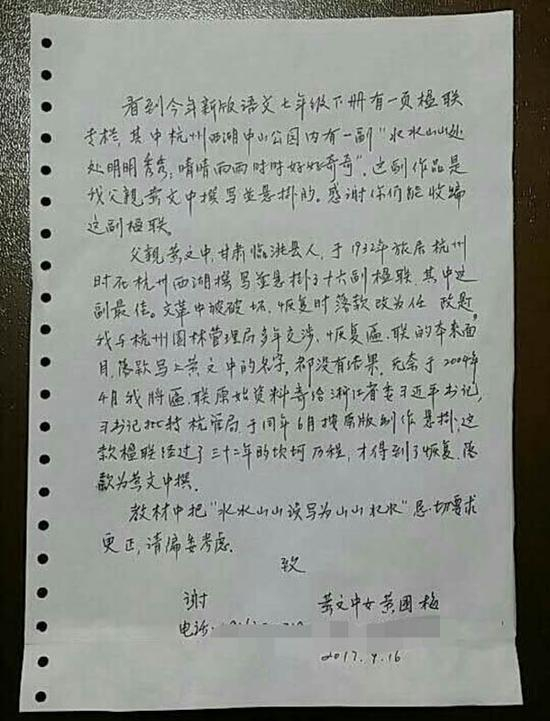 看到今年新版语文七年级下册有一页楹联
专栏,其中杭州西湖中山公园内有一副“水水山山处
处明明秀秀;晴晴雨雨时时好好奇奇”。这副作品是
我父亲黄文中撰写並悬挂的。感谢你们能收编
这副楹联。
父亲黄文中,甘肃临洮县人,于1932年旅居杭州
时在杭州西湖撰写並悬挂了十六副楹联,其中这
副最佳。文革中被破坏,恢复时落款改为任 政,是
我与杭州园林管理局多年交涉,恢复匾、联的本来面
目,落款写上黄文中的名字,都没有结果。无奈于2004年
4月我将匾、联原始资料寄给浙江省委习近平书记,
习书记批转杭管局于同年6月按原版制作悬挂,这
款楹联经过了三十二年的坎坷历程,才得到了恢复,落
款为黄文中撰。
教材中把“水水山山误写为山山水水”恳切要求
更正,请编委考虑。
致
谢 黄文中女黄国梅
电话:
2017.4.16